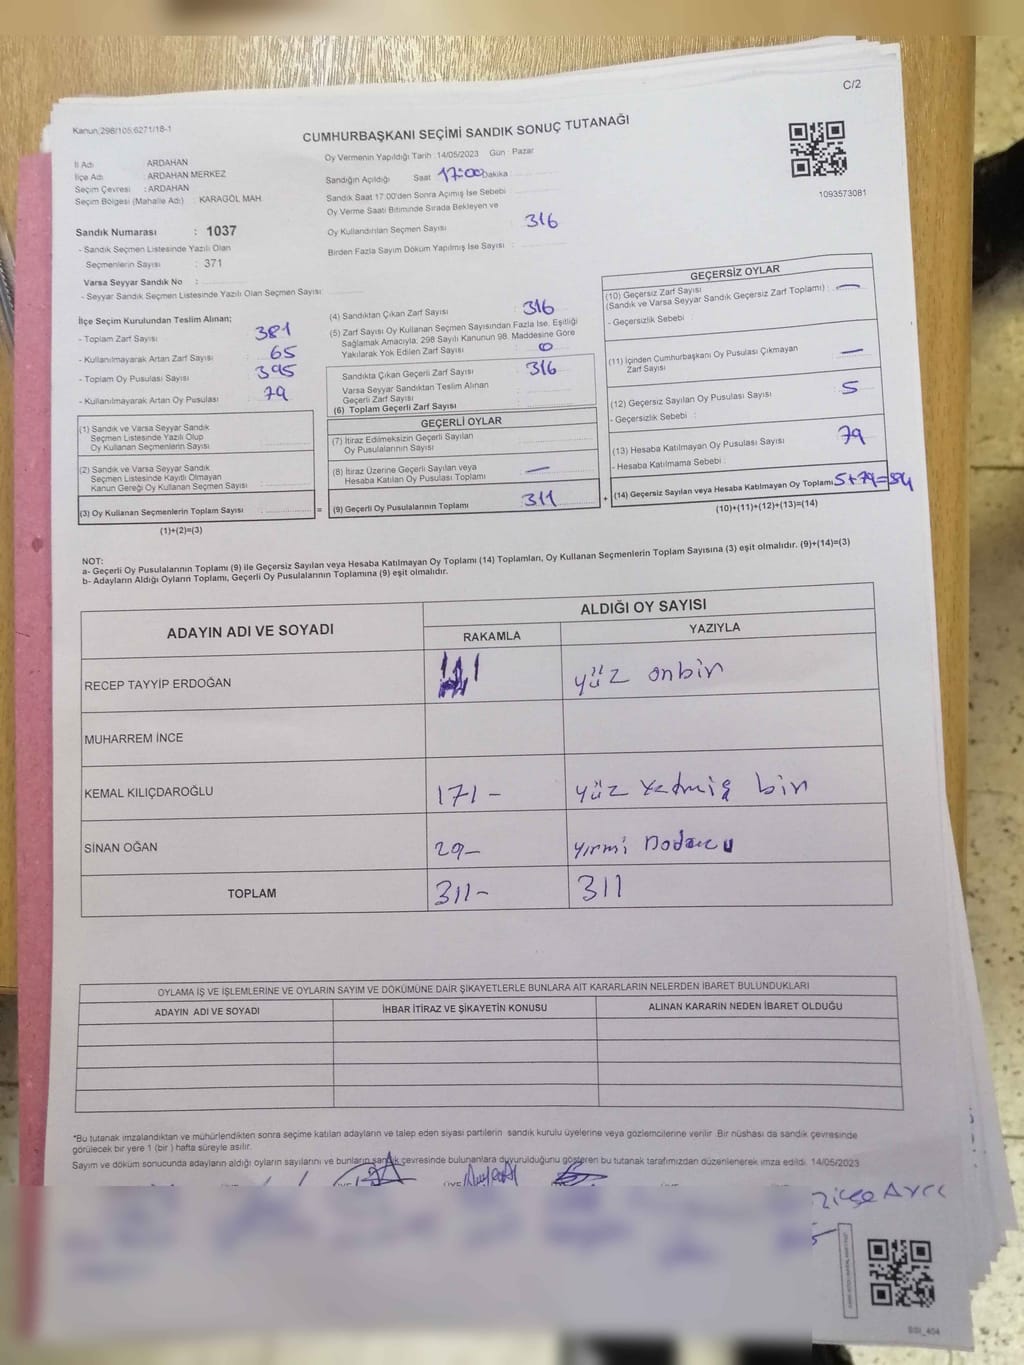 C/2
Kanun;298/105,6271/18-1
CUMHURBAŞKANI SEÇİMİ SANDIK SONUÇ TUTANAĞI
1093573081
İl Adı : ARDAHAN
İlçe Adı : ARDAHAN MERKEZ
Seçim Çevresi : ARDAHAN
Seçim Bölgesi (Mahalle Adı) : KARAGÖL MAH.
Sandık Numarası : 1037
- Sandık Seçmen Listesinde Yazılı Olan
Seçmenlerin Sayısı : 371
Varsa Seyyar Sandık No :
- Seyyar Sandık Seçmen Listesinde Yazılı Olan Seçmen Sayısı:
Oy Vermenin Yapıldığı Tarih :14/05/2023 Gün : Pazar
Sandığın Açıldığı Saat 17:00 Dakika
Sandık Saat 17:00'den Sonra Açmış İse Sebebi :
Oy Verme Saati Bitiminde Sırada Bekleyen ve
Oy Kullandırılan Seçmen Sayısı : 316
Birden Fazla Sayım Döküm Yapılmış İse Sayısı :
İlçe Seçim Kurulundan Teslim Alınan;
- Toplam Zarf Sayısı : 381
- Kullanılmayarak Artan Zarf Sayısı : 65
- Toplam Oy Pusulası Sayısı : 395
- Kullanılmayarak Artan Oy Pusulası : 79
(1) Sandık ve Varsa Seyyar Sandık
Seçmen Listesinde Yazılı Olup
Oy Kullanan Seçmenlerin Sayısı :
(2) Sandık ve Varsa Seyyar Sandık
Seçmen Listesinde Kayıtlı Olmayan
Kanun Gereği Oy Kullanan Seçmen Sayısı :
(3) Oy Kullanan Seçmenlerin Toplam Sayısı : =
(1)+(2)=(3)
(4) Sandıktan Çıkan Zarf Sayısı : 316
(5) Zarf Sayısı Oy Kullanan Seçmen Sayısından Fazla İse, Eşitliği
Sağlamak Amacıyla; 298 Sayılı Kanunun 98. Maddesine Göre
Yakılarak Yok Edilen Zarf Sayısı : 0
Sandıkta Çıkan Geçerli Zarf Sayısı : 316
Varsa Seyyar Sandıktan Teslim Alınan
Geçerli Zarf Sayısı :
(6) Toplam Geçerli Zarf Sayısı :
GEÇERLİ OYLAR
(7) İtiraz Edilmeksizin Geçerli Sayılan
Oy Pusulalarının Sayısı :
(8) İtiraz Üzerine Geçerli Sayılan veya
Hesaba Katılan Oy Pusulası Toplamı : —
(9) Geçerli Oy Pusulalarının Toplamı : 311 +
GEÇERSİZ OYLAR
(10) Geçersiz Zarf Sayısı
(Sandık ve Varsa Seyyar Sandık Geçersiz Zarf Toplamı) : —
- Geçersizlik Sebebi :
(11) İçinden Cumhurbaşkanı Oy Pusulası Çıkmayan
Zarf Sayısı : —
(12) Geçersiz Sayılan Oy Pusulası Sayısı : 5
- Geçersizlik Sebebi :
(13) Hesaba Katılmayan Oy Pusulası Sayısı : 79
- Hesaba Katılmama Sebebi :
(14) Geçersiz Sayılan veya Hesaba Katılmayan Oy Toplamı: 5+79=84
(10)+(11)+(12)+(13)=(14)
NOT:
a- Geçerli Oy Pusulalarının Toplamı (9) ile Geçersiz Sayılan veya Hesaba Katılmayan Oy Toplamı (14) Toplamları, Oy Kullanan Seçmenlerin Toplam Sayısına (3) eşit olmalıdır. (9)+(14)=(3)
b- Adayların Aldığı Oyların Toplamı, Geçerli Oy Pusulalarının Toplamına (9) eşit olmalıdır.
ADAYIN ADI VE SOYADI ALDIĞI OY SAYISI
RAKAMLA YAZIYLA
RECEP TAYYİP ERDOĞAN 111 yüz onbir
MUHARREM İNCE
KEMAL KILIÇDAROĞLU 171- yüz yetmiş bir
SİNAN OĞAN 29- yirmi
TOPLAM 311- 311
OYLAMA İŞ VE İŞLEMLERİNE VE OYLARIN SAYIM VE DÖKÜMÜNE DAİR ŞİKAYETLERLE BUNLARA AİT KARARLARIN NELERDEN İBARET BULUNDUKLARI
ADAYIN ADI VE SOYADI İHBAR İTİRAZ VE ŞİKAYETİN KONUSU ALINAN KARARIN NEDEN İBARET OLDUĞU
*Bu tutanak imzalandıktan ve mühürlendikten sonra seçime katılan adayların ve talep eden siyasi partilerin sandık kurulu üyelerine veya gözlemcilerine verilir. Bir nüshası da sandık çevresinde
görülecek bir yere 1 (bir ) hafta süreyle asılır.
Sayım ve döküm sonucunda adayların aldığı oyların sayılarını ve bunların sandık çevresinde bulunanlara duyurulduğunu gösteren bu tutanak tarafımızdan düzenlenerek imza edildi. 14/05/2023